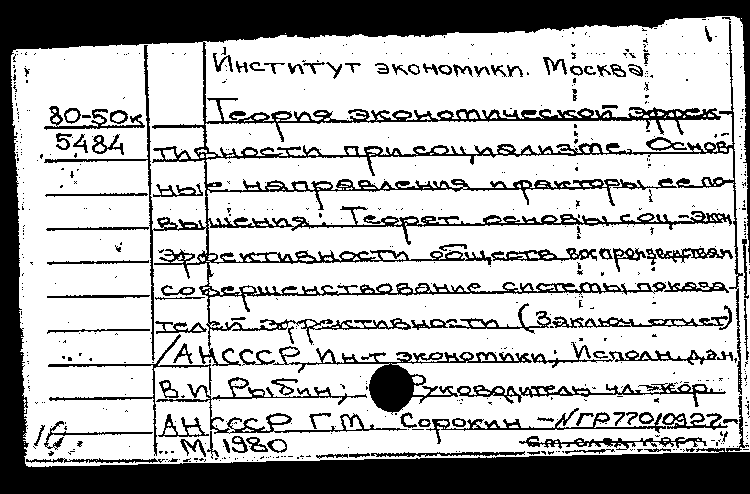 Институт экономики. Москва
80-50к
5484
Теория экономической эффек-
тивности при социализме. Основ-
ные направления и факторы ее по-
вышения: Теорет. основы соц.-экон.
эффективности обществ. воспроизводства
совершенствование системы показа-
телей эффективности (Заключ. отчет)
/АН СССР, Ин-т экономики; Исполн. дан.
В.И. Рыбин; Руководитель чл.-кор.
АН СССР Г.М. Сорокин - №ГР77010927-
М., 1980
См. след. карт.